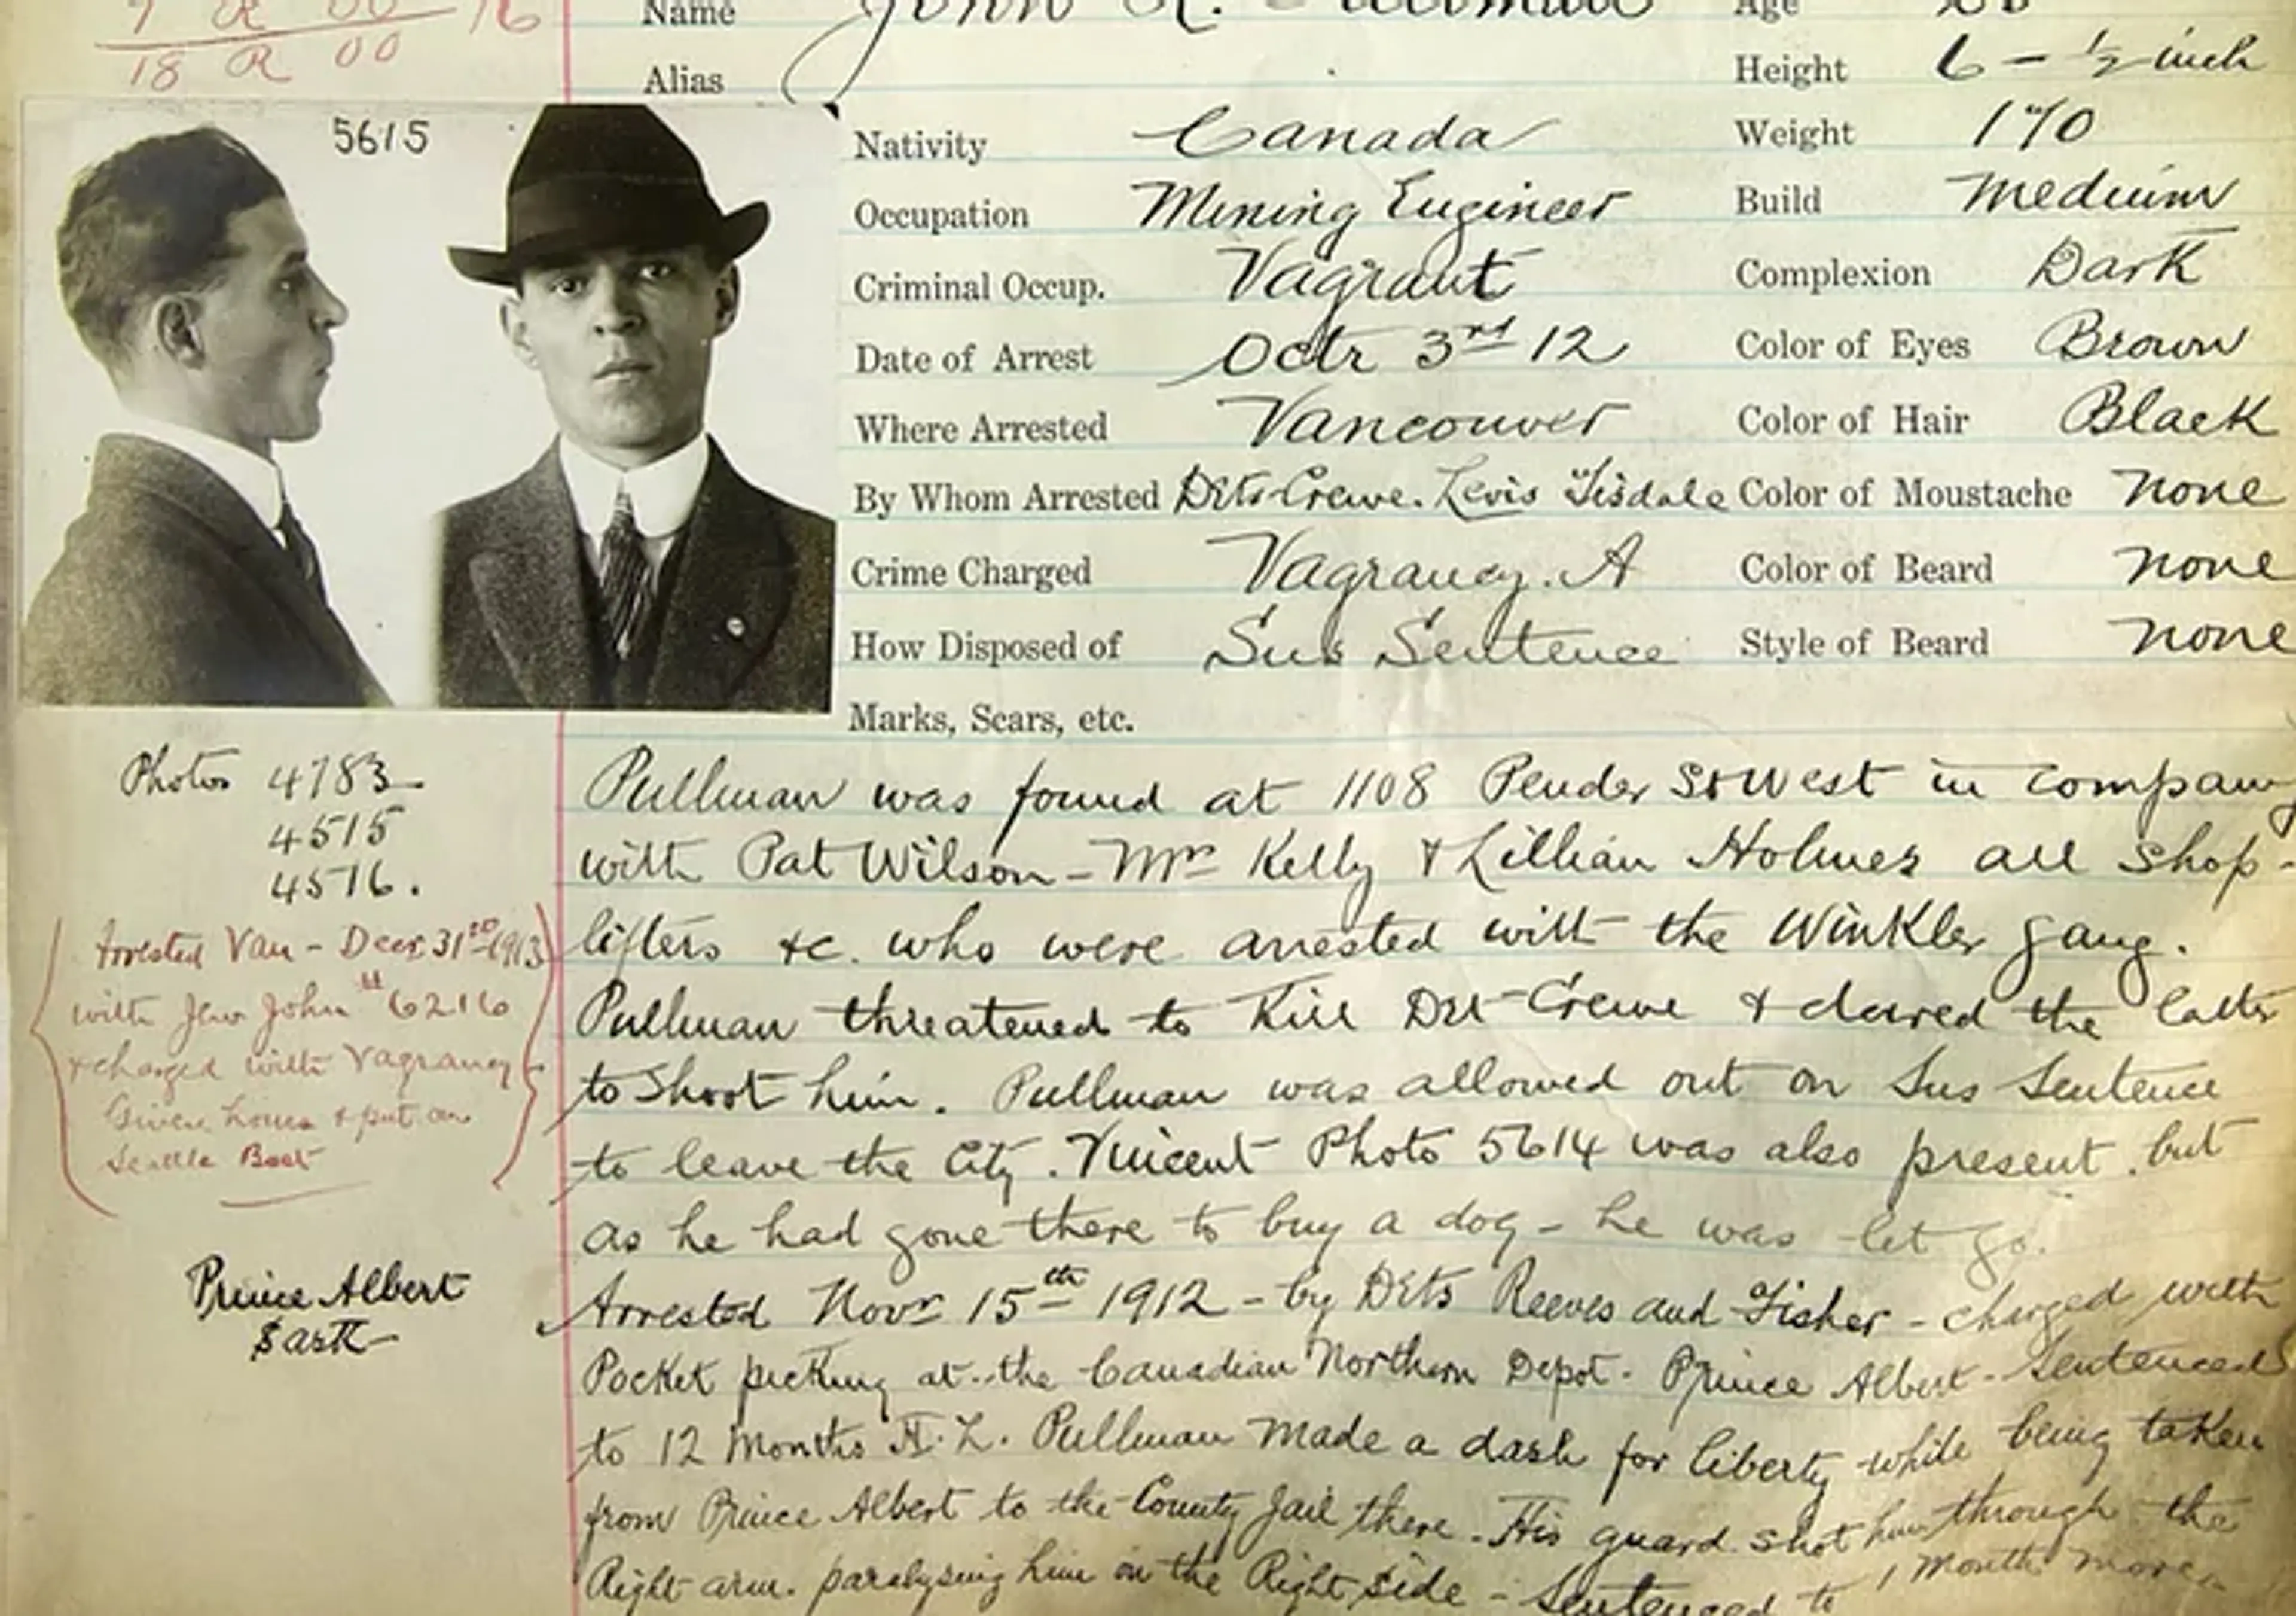 7 R 00 16
18 R 00
Name John R. Pullman Age
Alias
Height 6 - ½ inch
5615
Nativity Canada Weight 170
Occupation Mining Engineer Build Medium
Criminal Occup. Vagrant Complexion Dark
Date of Arrest Octr 3rd 12 Color of Eyes Brown
Where Arrested Vancouver Color of Hair Black
By Whom Arrested Dets Crewe. Levis Tisdale Color of Moustache None
Crime Charged Vagrancy. A Color of Beard None
How Disposed of Sus Sentence Style of Beard None
Marks, Scars, etc.
Photos 4783
4515
4516.
Arrested Van - Decr 31st 1913
with Jew John # 6216
& charged with Vagrancy
Given hours & put on
Seattle Boat
Prince Albert
Sask
Pullman was found at 1108 Pender St West in company
with Pat Wilson - Mrs Kelly & Lillian Holmes all shop-
lifters &c. who were arrested with the Winkler gang.
Pullman threatened to Kill Det Crewe & dared the latter
to shoot him. Pullman was allowed out on Sus Sentence
to leave the City. Vincent Photo 5614 was also present. but
as he had gone there to buy a dog - he was let go.
Arrested Novr 15th 1912 - by Dets Reeves and Fisher - charged with
Pocket picking at the Canadian Northern Depot. Prince Albert - Sentenced
to 12 Months H. L. Pullman made a dash for liberty while being taken
from Prince Albert to the County Jail there. His guard shot him through the
Right arm. paralysing him on the Right side - Sentenced to 1 Month more